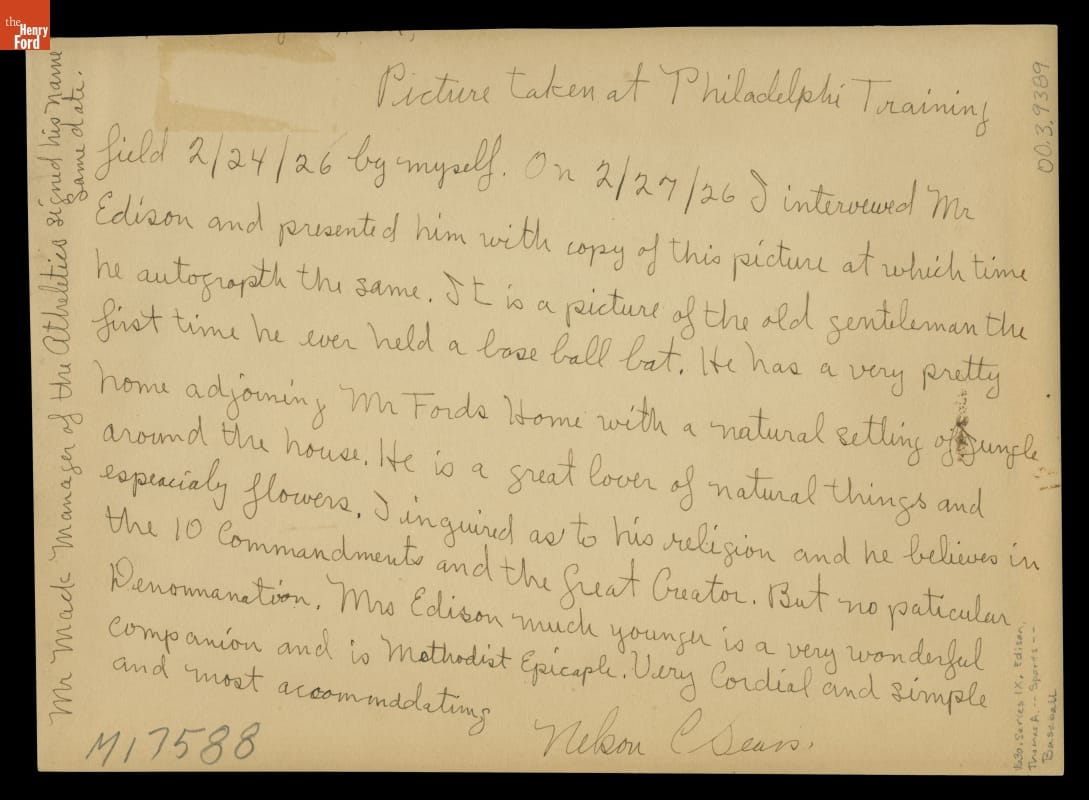 the
Henry
Ford
Picture taken at Philadelphi Training
field 2/24/26 by myself. On 2/27/26 I interveued Mr
Edison and presented him with copy of this picture at which time
he autogropth the same. It is a picture of the old genteleman the
first time he ever held a base ball bat. He has a very pretty
home adjoining Mr Fords Home with a natural setling of Jungle
around the house. He is a great lover of natural things and
espeacialy flowers. I inquired as to his religion and he believes in
the 10 Commandments and the Great Creator. But no paticular
Denomnanation. Mrs Edison much younger is a very wonderful
companion and is Methodist Epicaple. Very Cordial and simple
and most accommddating
Nelson C Sears.
Mr Mack Manager of the Atheletics signed his name
same date.
M17588
00.3.9389
1630. Series IX, Edison,
Thomas A. -- Sports --
Baseball